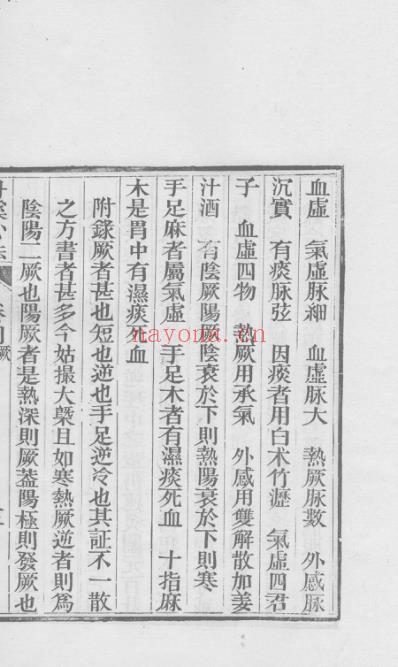 血虛　氣虛脉細　血虛脉大　熱厥脉數　外感脉
沉實　有痰脉弦　因痰者用白术竹瀝　氣虛四君
子　血虛四物　熱厥用承氣　外感用雙解散加姜
汁酒　有陰厥陽厥陰衰於下則熱陽衰於下則寒
手足麻者屬氣虛　手足木者有濕痰死血　十指麻
木是胃中有濕痰死血
附錄厥者甚也短也逆也手足逆冷也其証不一散
之方書者甚多今姑撮大槩且如寒熱厥逆者則爲
陰陽二厥也陽厥者是熱深則厥蓋陽極則發厥也
nayona.cn